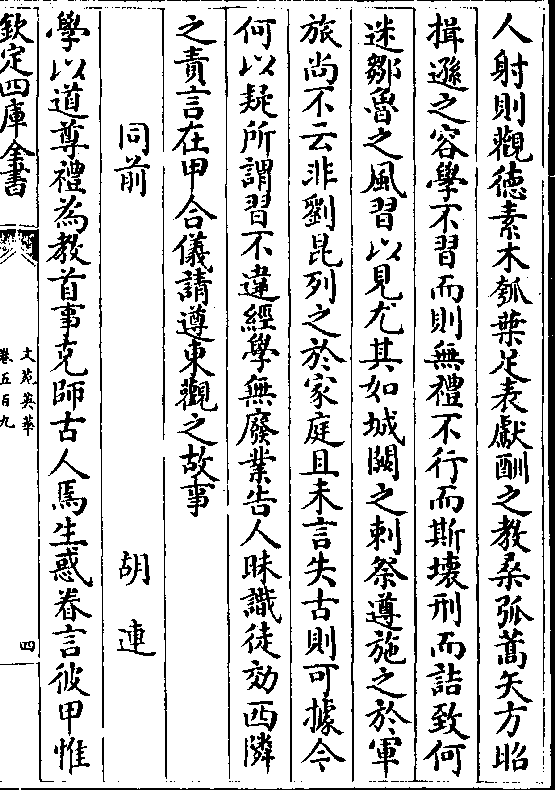 人射則觀徳素木瓠葉足表獻酬之教桑弧蒿矢方昭
揖遜之容學不習而則無禮不行而斯壊刑而詰致何
迷鄒魯之風習以見尤其如城闕之刺祭遵施之於軍
旅尚不云非劉昆列之於家庭且未言失古則可據今
何以疑所謂習不違經學無廢業告人昧識徒効西隣
之責言在甲合儀請遵東觀之故事
同前 胡連
學以道尊禮為教首事克師古人焉生惑眷言彼甲惟
欽定四庫全書
文苑英華
卷五百九
四